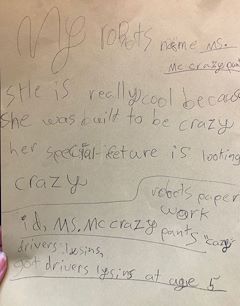 My robots name ms.
mc crazy pants
she is really cool because
she was built to be crazy
her special feature is looking
crazy
robots paper
work
id, Ms. Mc crazy pants "crazy
drivers lysins,
got drivers lysins at age 5